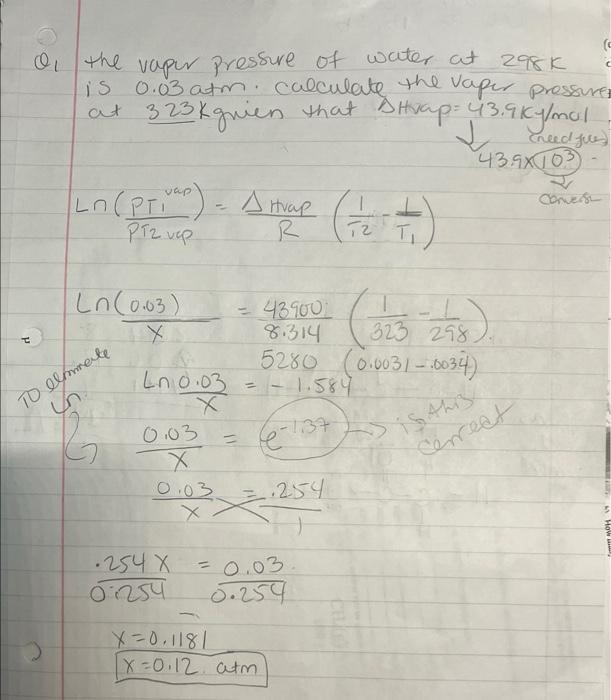 Q1 the vapur pressure of water at 298K
is 0.03 atm. calculate the vapur pressure
at 323K gvien that ΔHvap = 43.9Ky/mol
(need jules)
43.9x10³
convert
Ln(PT1 vap / PT2 vap) = ΔHvap / R (1/T2 - 1/T1)
Ln(0.03) / x = 43900 / 8.314 (1/323 - 1/298)
5280 (0.0031 - .0034)
TO eliminate Ln 0.03 / x = -1.584
0.03 / x = e^-1.37 → is this correct
0.03 / x = .254 / 1
.254x / 0.254 = 0.03 / 0.254
x = 0.1181
x = 0.12 atm